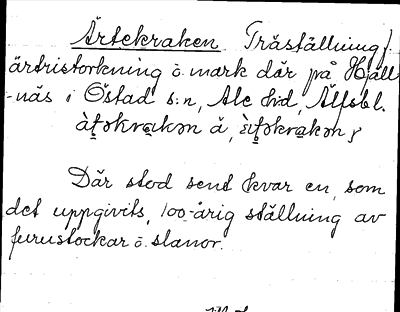 Ärtekraken Träställning f.
ärtristorkning o. mark där på Hjäll-
-näs i Östad s:n, Ale hd, Älfsbl.
Där stod sent kvar en, som
det uppgivits, 100-årig ställning av
furustockar o. slanor.